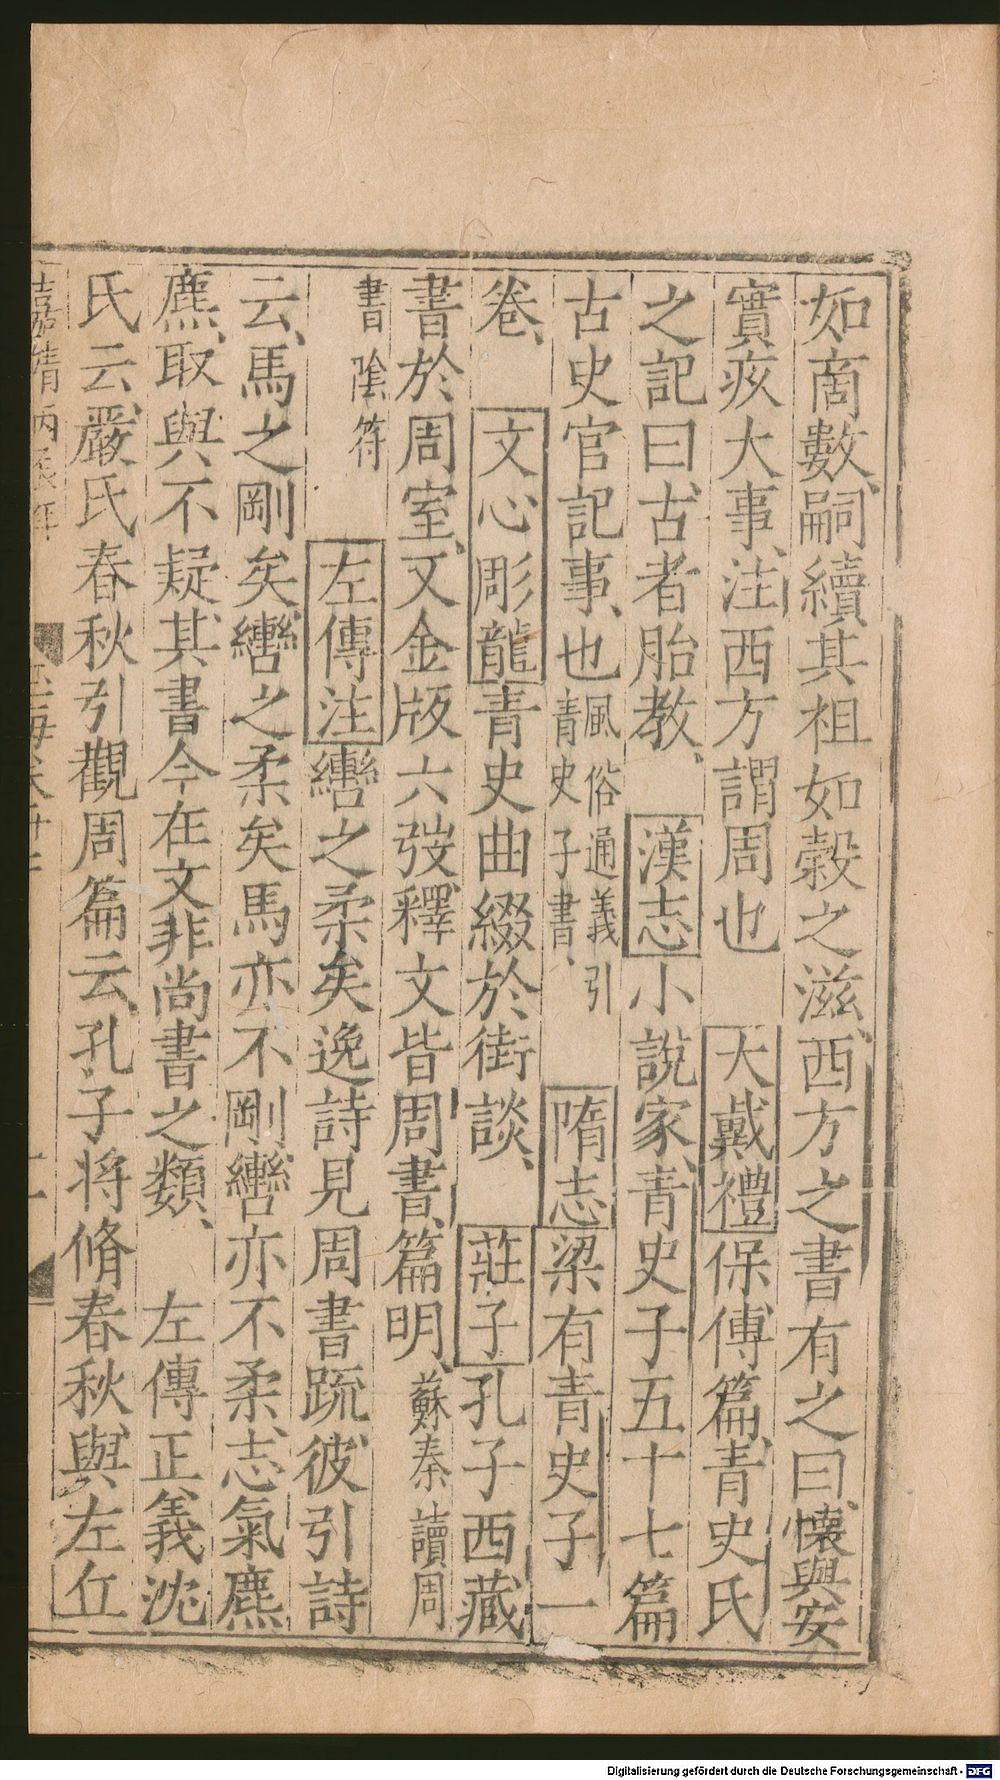 如商數嗣續其祖如穀之滋西方之書有之曰懷與安
實疚大事注西方謂周也 大戴禮保傅篇青史氏
之記曰古者胎教 漢志小說家青史子五十七篇
古史官記事也風俗通義引青史子書 隋志梁有青史子一
卷 文心彫龍青史曲綴於街談 莊子孔子西藏
書於周室又金版六弢釋文皆周書篇明蘇秦讀周
書陰符 左傳注轡之柔矣逸詩見周書疏彼引詩
云馬之剛矣轡之柔矣馬亦不剛轡亦不柔志氣麃
麃取與不疑其書今在文非尚書之類 左傳正義沈
氏云嚴氏春秋引觀周篇云孔子將脩春秋與左丘
嘉靖丙辰年
Digitalisierung gefördert durch die Deutsche Forschungsgemeinschaft - DFG